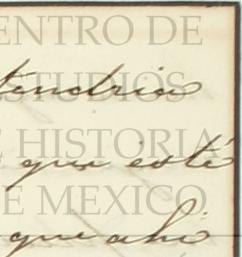 CENTRO DE
tendria
ESTUDIOS
DE HISTORIA
que esté
DE MEXICO
que ahi